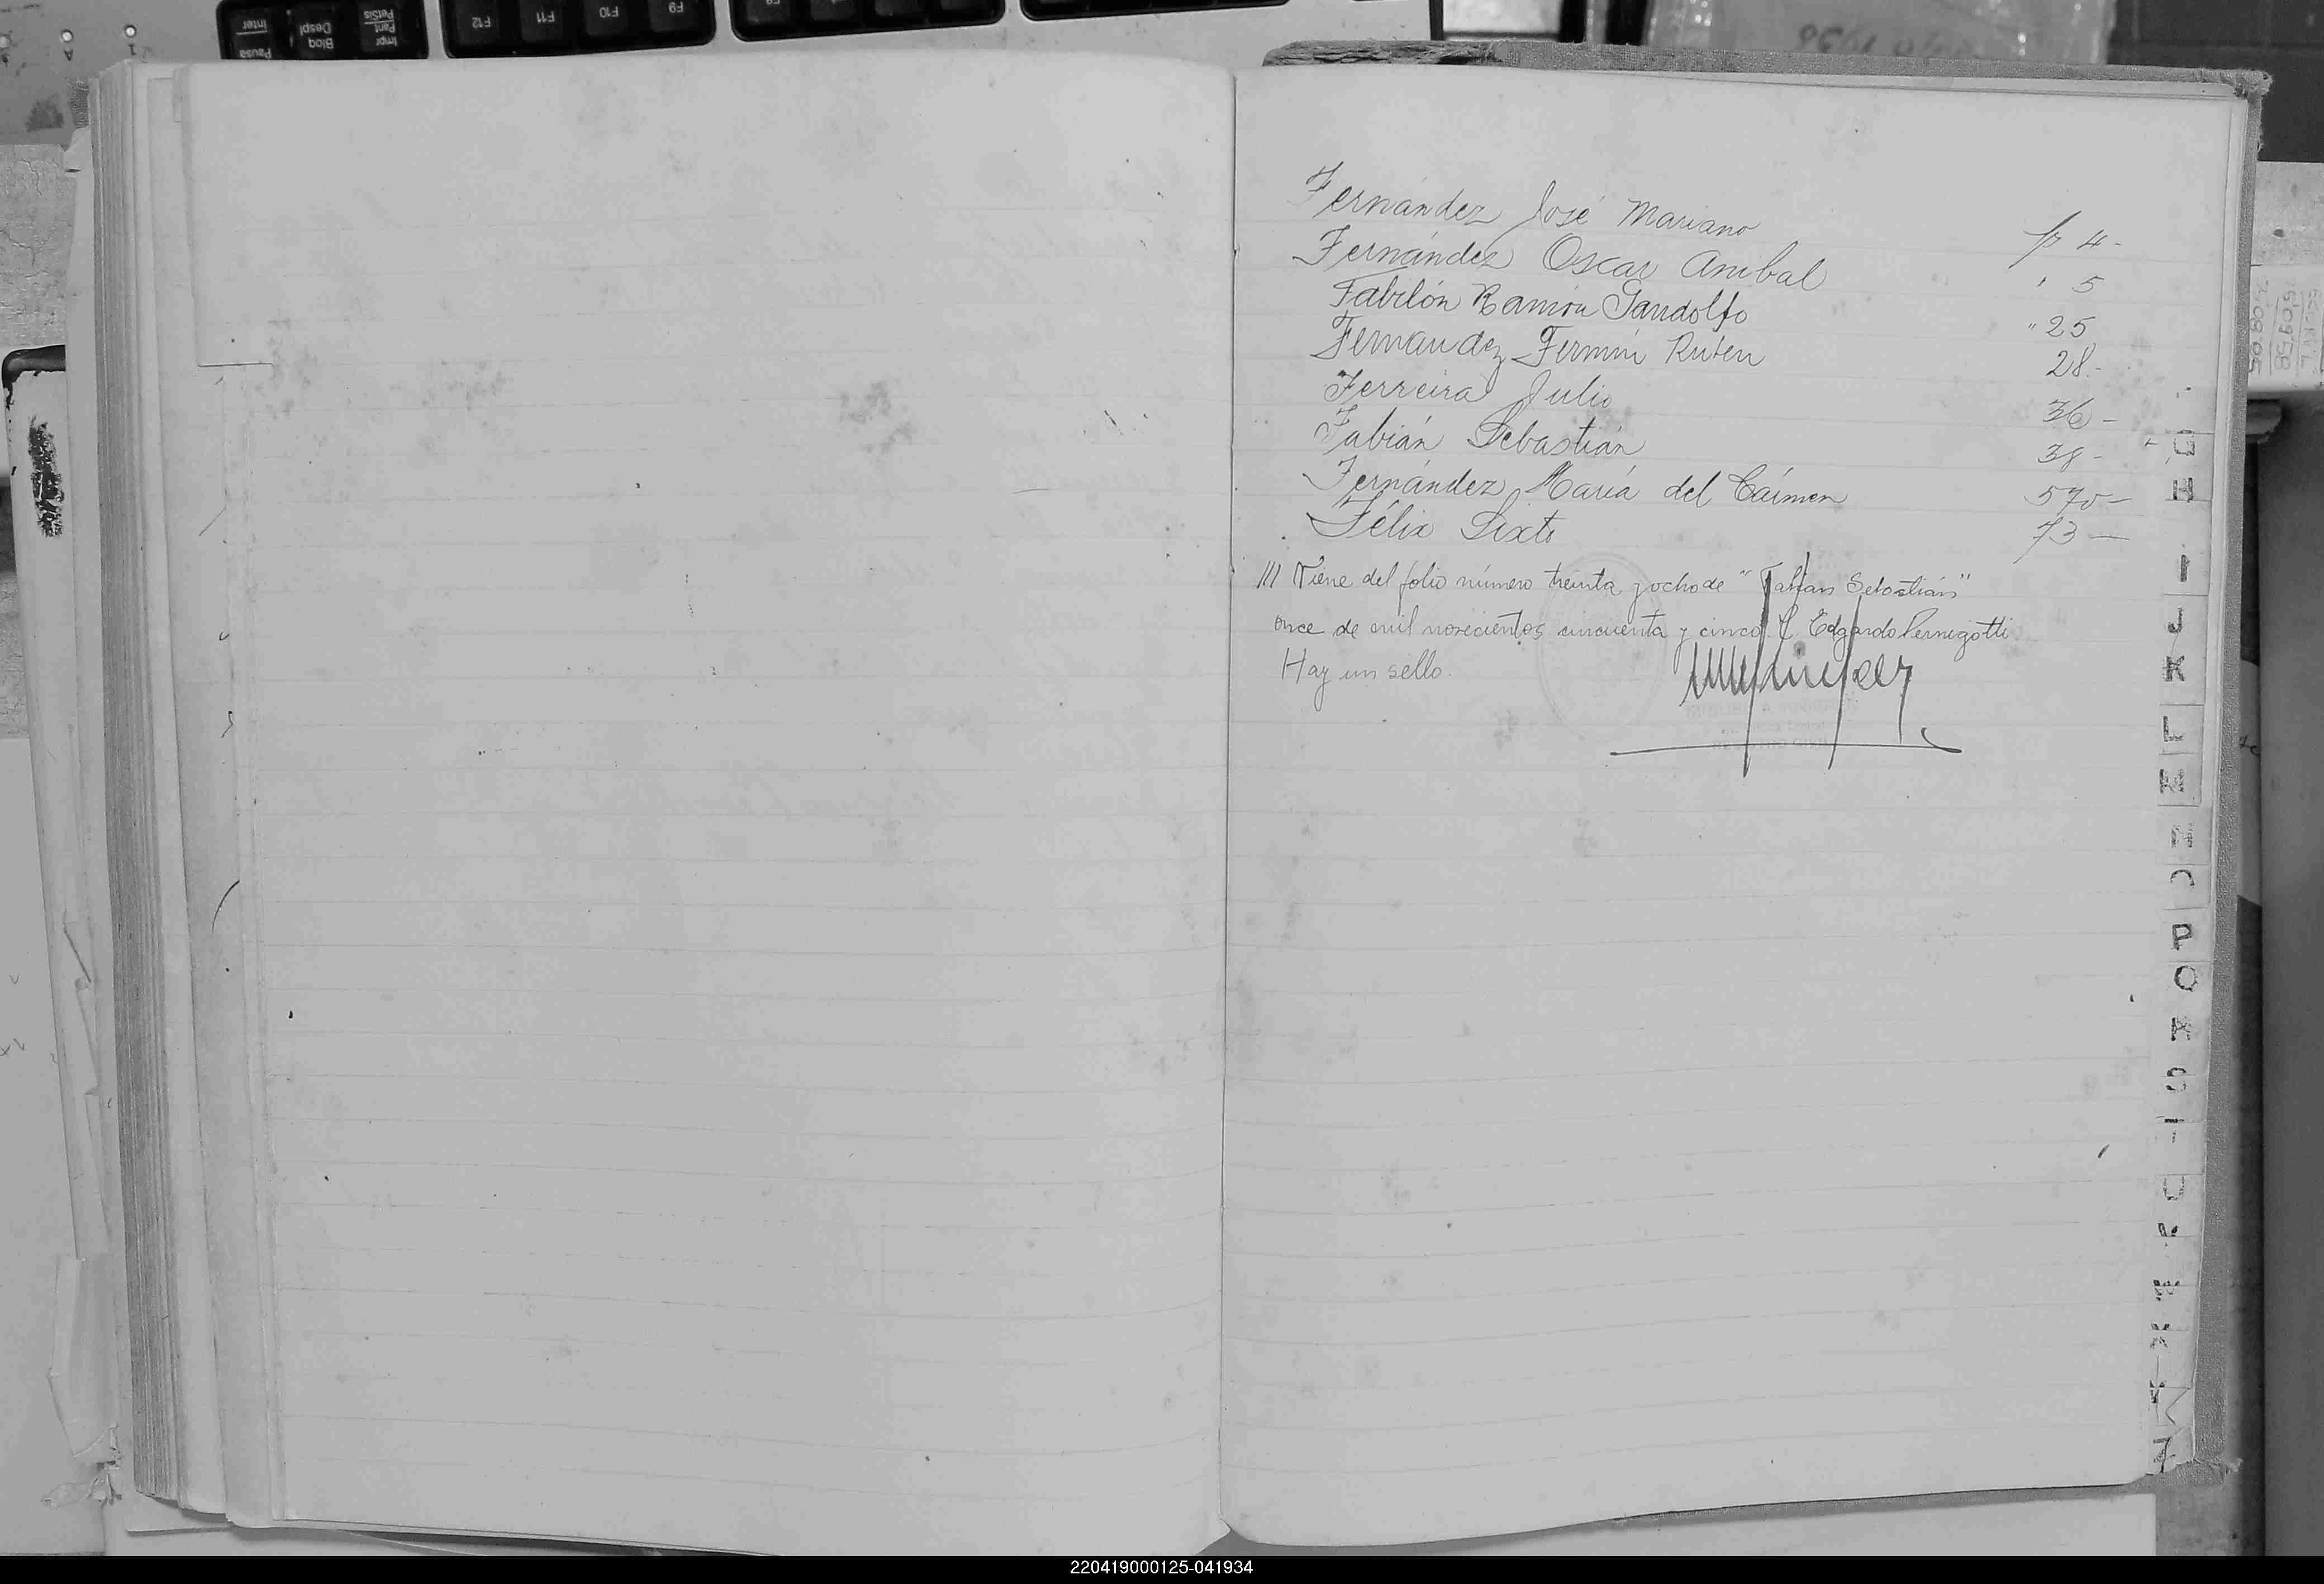 Fernández José Mariano fº 4-
Fernández Oscar Anibal " 5
Fabilón Ramón Gandolfo " 25
Fernandez Fermin Ruben 28.-
Ferreira Julio 36-
Fabián Sebastián 38-
Fernández María del Cármen 570-
Félix Sixto 73-
/// Viene del folio número treinta y ocho de "Fabian Sebastián"
once de mil novecientos cincuenta y cinco. Edgardo Pernigotti
Hay un sello.
G
H
I
J
K
L
M
N
O
P
Q
R
S
T
U
V
X
Z
F12 F11 F10 F9
Impr
Pant
PetSis
Bloq
Despl
Pausa
Inter
220419000125-041934